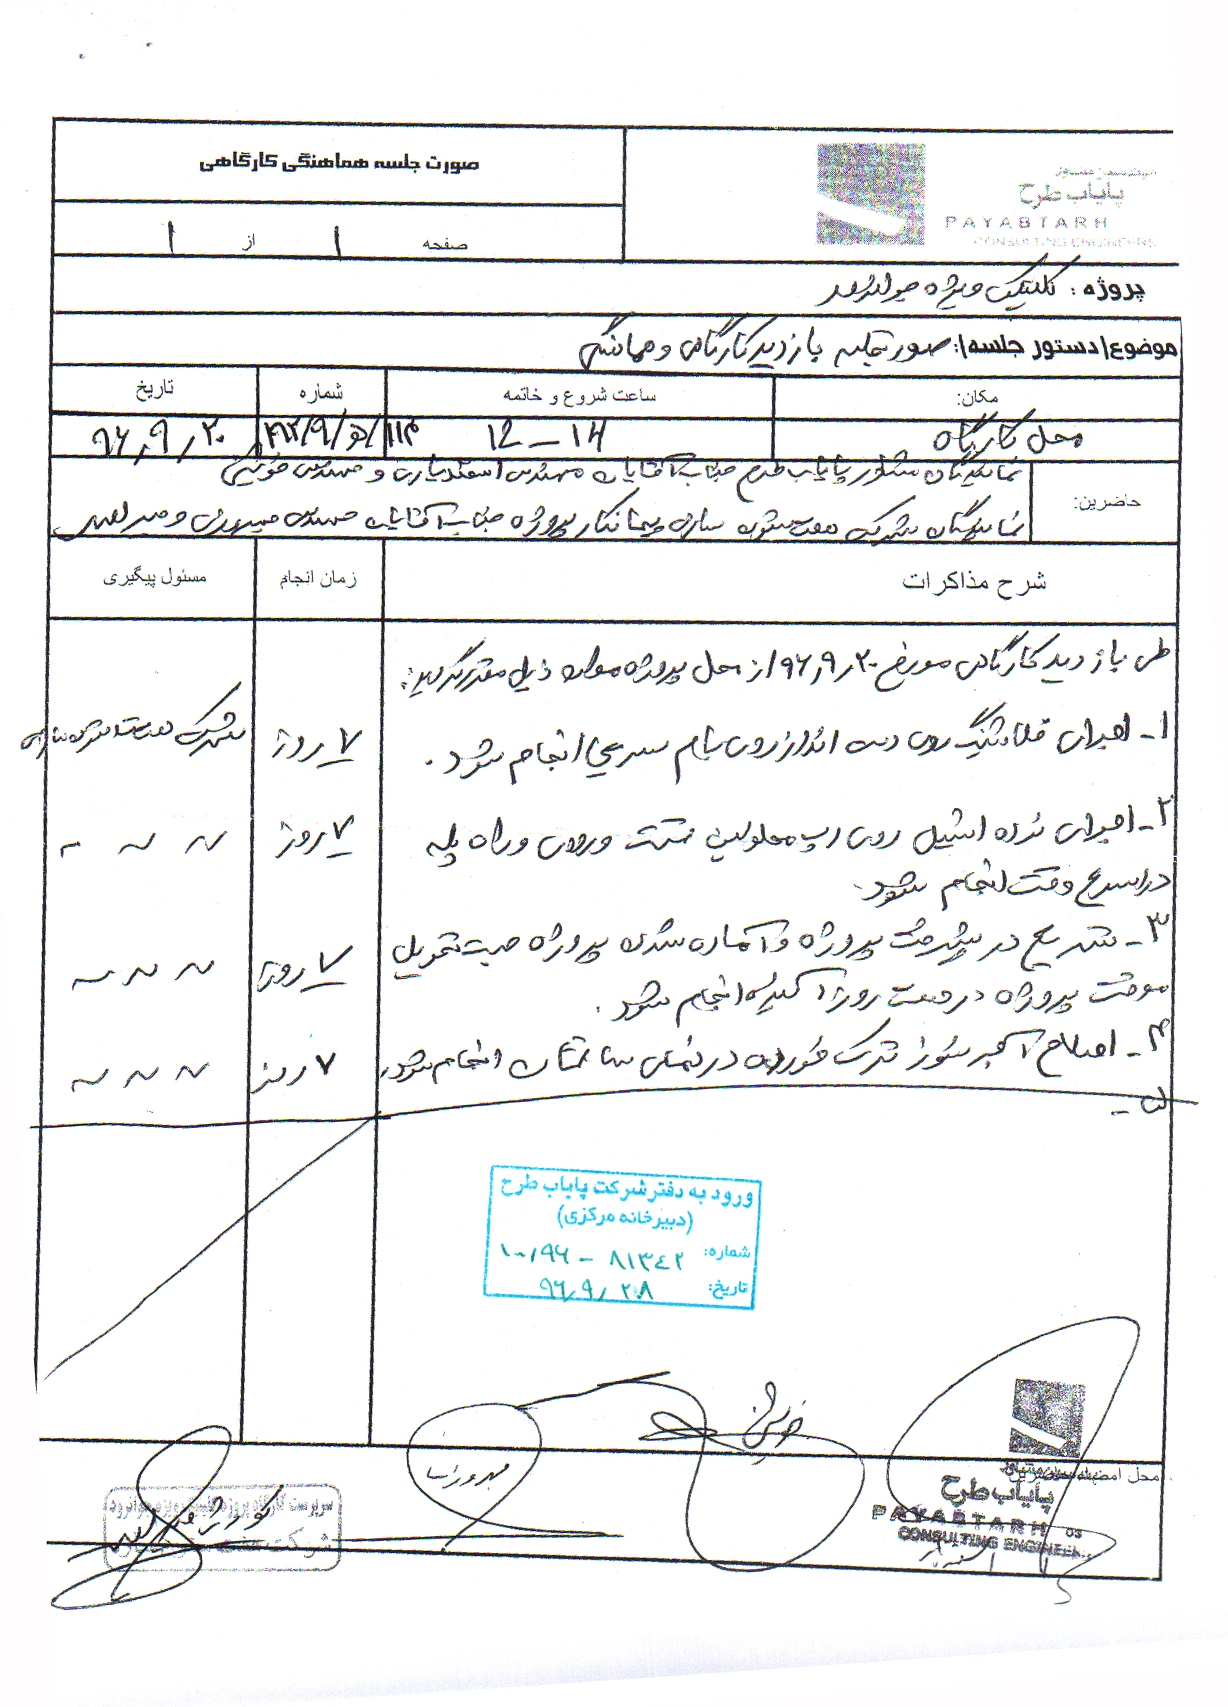 صورت جلسه هماهنگی کارگاهی
مهندسین مشاور
پایاب طرح
PAYABTARH
CONSULTING ENGINEERS
صفحه ۱ از ۱
پروژه : کلینیک ویژه جوانرود
موضوع(دستور جلسه): صورتجلسه بازدید کارگاهی و هماهنگی
مکان:
ساعت شروع و خاتمه
شماره
تاریخ
محل کارگاه
۱۲ – ۱۴
۹۶٫۹٫۲۰
حاضرین:
نمایندگان مشاور پایاب طرح جناب آقایان مهندس اسفندیاری و مهندس
نمایندگان شرکت هفت ستون سازه پیمانکار پروژه جناب آقایان مهندس و
شرح مذاکرات
زمان انجام
مسئول پیگیری
طی بازدید کارگاهی مورخ ۹۶٫۹٫۲۰ از محل پروژه موارد ذیل مقرر گردید:
۱- اجرای فلاشینگ روی دست انداز روی بام سریعا انجام شود .
۷ روز
شرکت هفت ستون سازه
۲- اجرای نرده استیل روی رمپ معلولین قسمت ورودی و راه پله
در اسرع وقت انجام شود.
۷ روز
۳- تسریع در پیشرفت پروژه و آماده شدن پروژه جهت تحویل
موقت پروژه در هفت روز آینده انجام شود .
۷ روز
۴- اصلاح آجر نسوز ترک خورده در نمای ساختمان انجام شود.
۷ روز
۵-
ورود به دفتر شرکت پایاب طرح
(دبیرخانه مرکزی)
شماره: ۱۰/۹۶ – ۸۱۳۴۲
تاریخ: ۹۶٫۹٫۲۸
محل امضاء
پایاب طرح
PAYABTARH
CONSULTING ENGINEERS
سرپرست کارگاه پروژه کلینیک ویژه جوانرود
شرکت